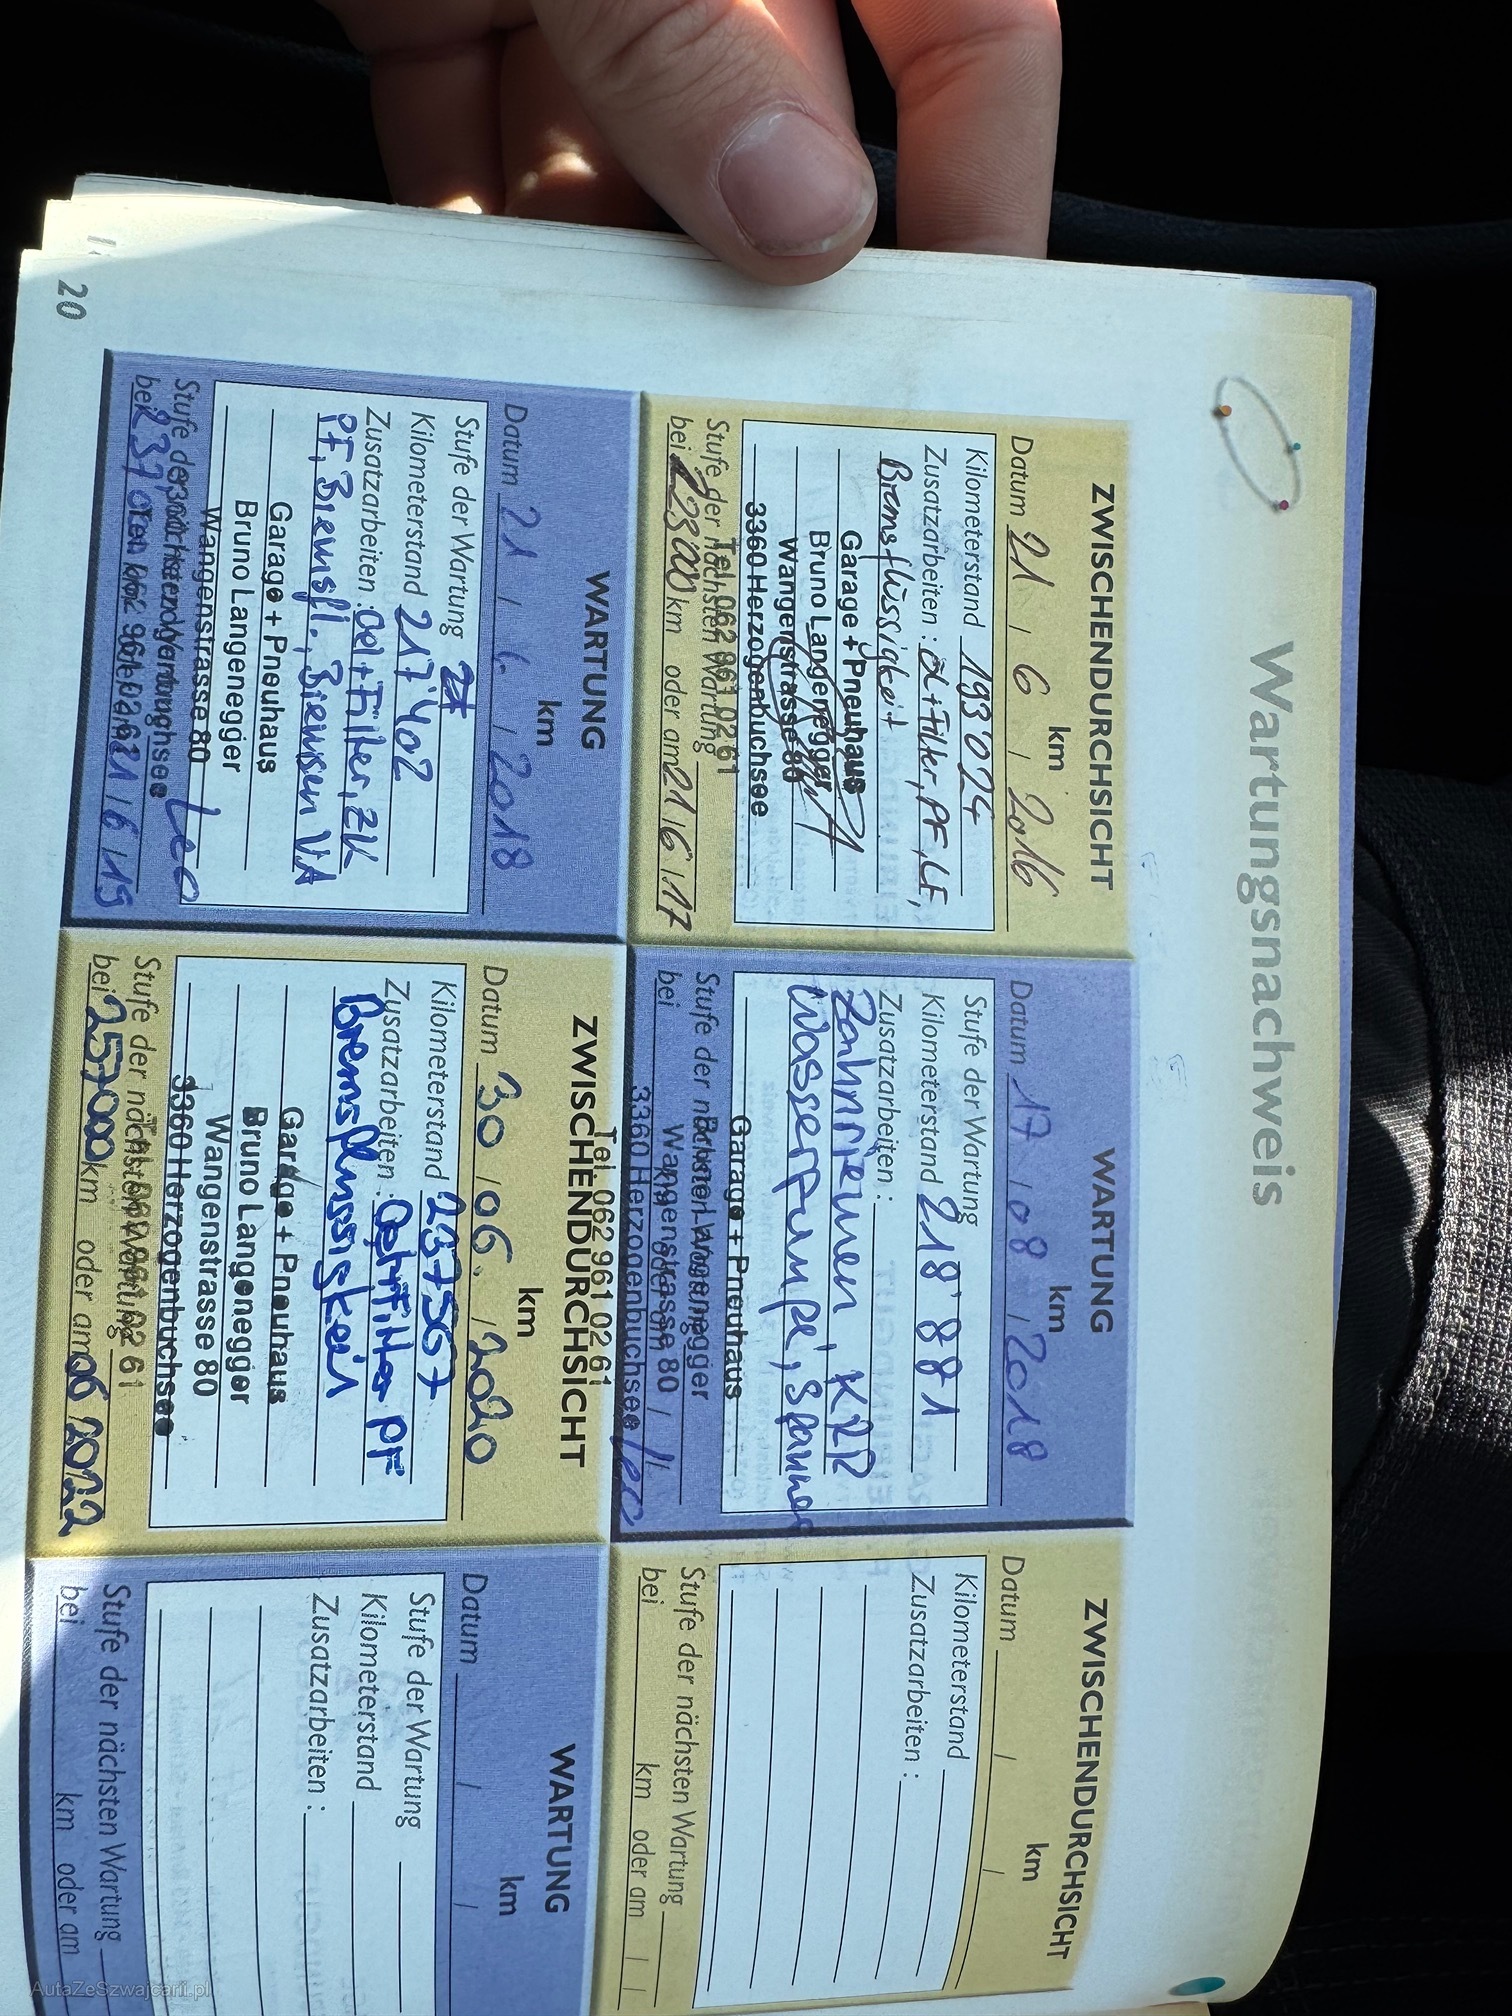 Wartungsnachweis
ZWISCHENDURCHSICHT
km
Datum 21 / 6 / 2016
Kilometerstand 193 024
Zusatzarbeiten : Öl+Filter, PF, LF,
Bremsflüssigkeit
Garage + Pneuhaus
Bruno Langenegger
Wangenstrasse 80
3360 Herzogenbuchsee
Tel. 062 961 02 61
Stufe der nächsten Wartung
bei 223000 km oder am 21 / 6 / 17
WARTUNG
km
Datum 17 / 08 / 2018
Stufe der Wartung
Kilometerstand 218'881
Zusatzarbeiten :
Zahnriemen, KRR
Wasserpumpe, Spanner
Garage + Pneuhaus
Bruno Langenegger
Stufe der nächsten Wartung
Wangenstrasse 80
bei km oder am /
3360 Herzogenbuchsee
Tel. 062 961 02 61
ZWISCHENDURCHSICHT
km
Datum / /
Kilometerstand
Zusatzarbeiten :
Stufe der nächsten Wartung
bei km oder am / /
WARTUNG
km
Datum 21 / 6. / 2018
Stufe der Wartung
Kilometerstand 217'402
Zusatzarbeiten : Oel+Filter, ZK
PF, Bremsfl., Bremsen VA
Garage + Pneuhaus
Bruno Langenegger
Wangenstrasse 80
3360 Herzogenbuchsee
Stufe der nächsten Wartung
Tel. 062 961 02 61
bei 237 000 km oder am 21 / 6 / 19
ZWISCHENDURCHSICHT
km
Datum 30 / 06. / 2020
Kilometerstand 237567
Zusatzarbeiten : Oel+Filter PF
Bremsflussigkeit
Garage + Pneuhaus
Bruno Langenegger
Wangenstrasse 80
3360 Herzogenbuchsee
Tel. 062 961 02 61
Stufe der nächsten Wartung
bei 257000 km oder am 06 2022
WARTUNG
km
Datum / /
Stufe der Wartung
Kilometerstand
Zusatzarbeiten :
Stufe der nächsten Wartung
bei km oder am
20
AutaZeSzwajcarii.pl